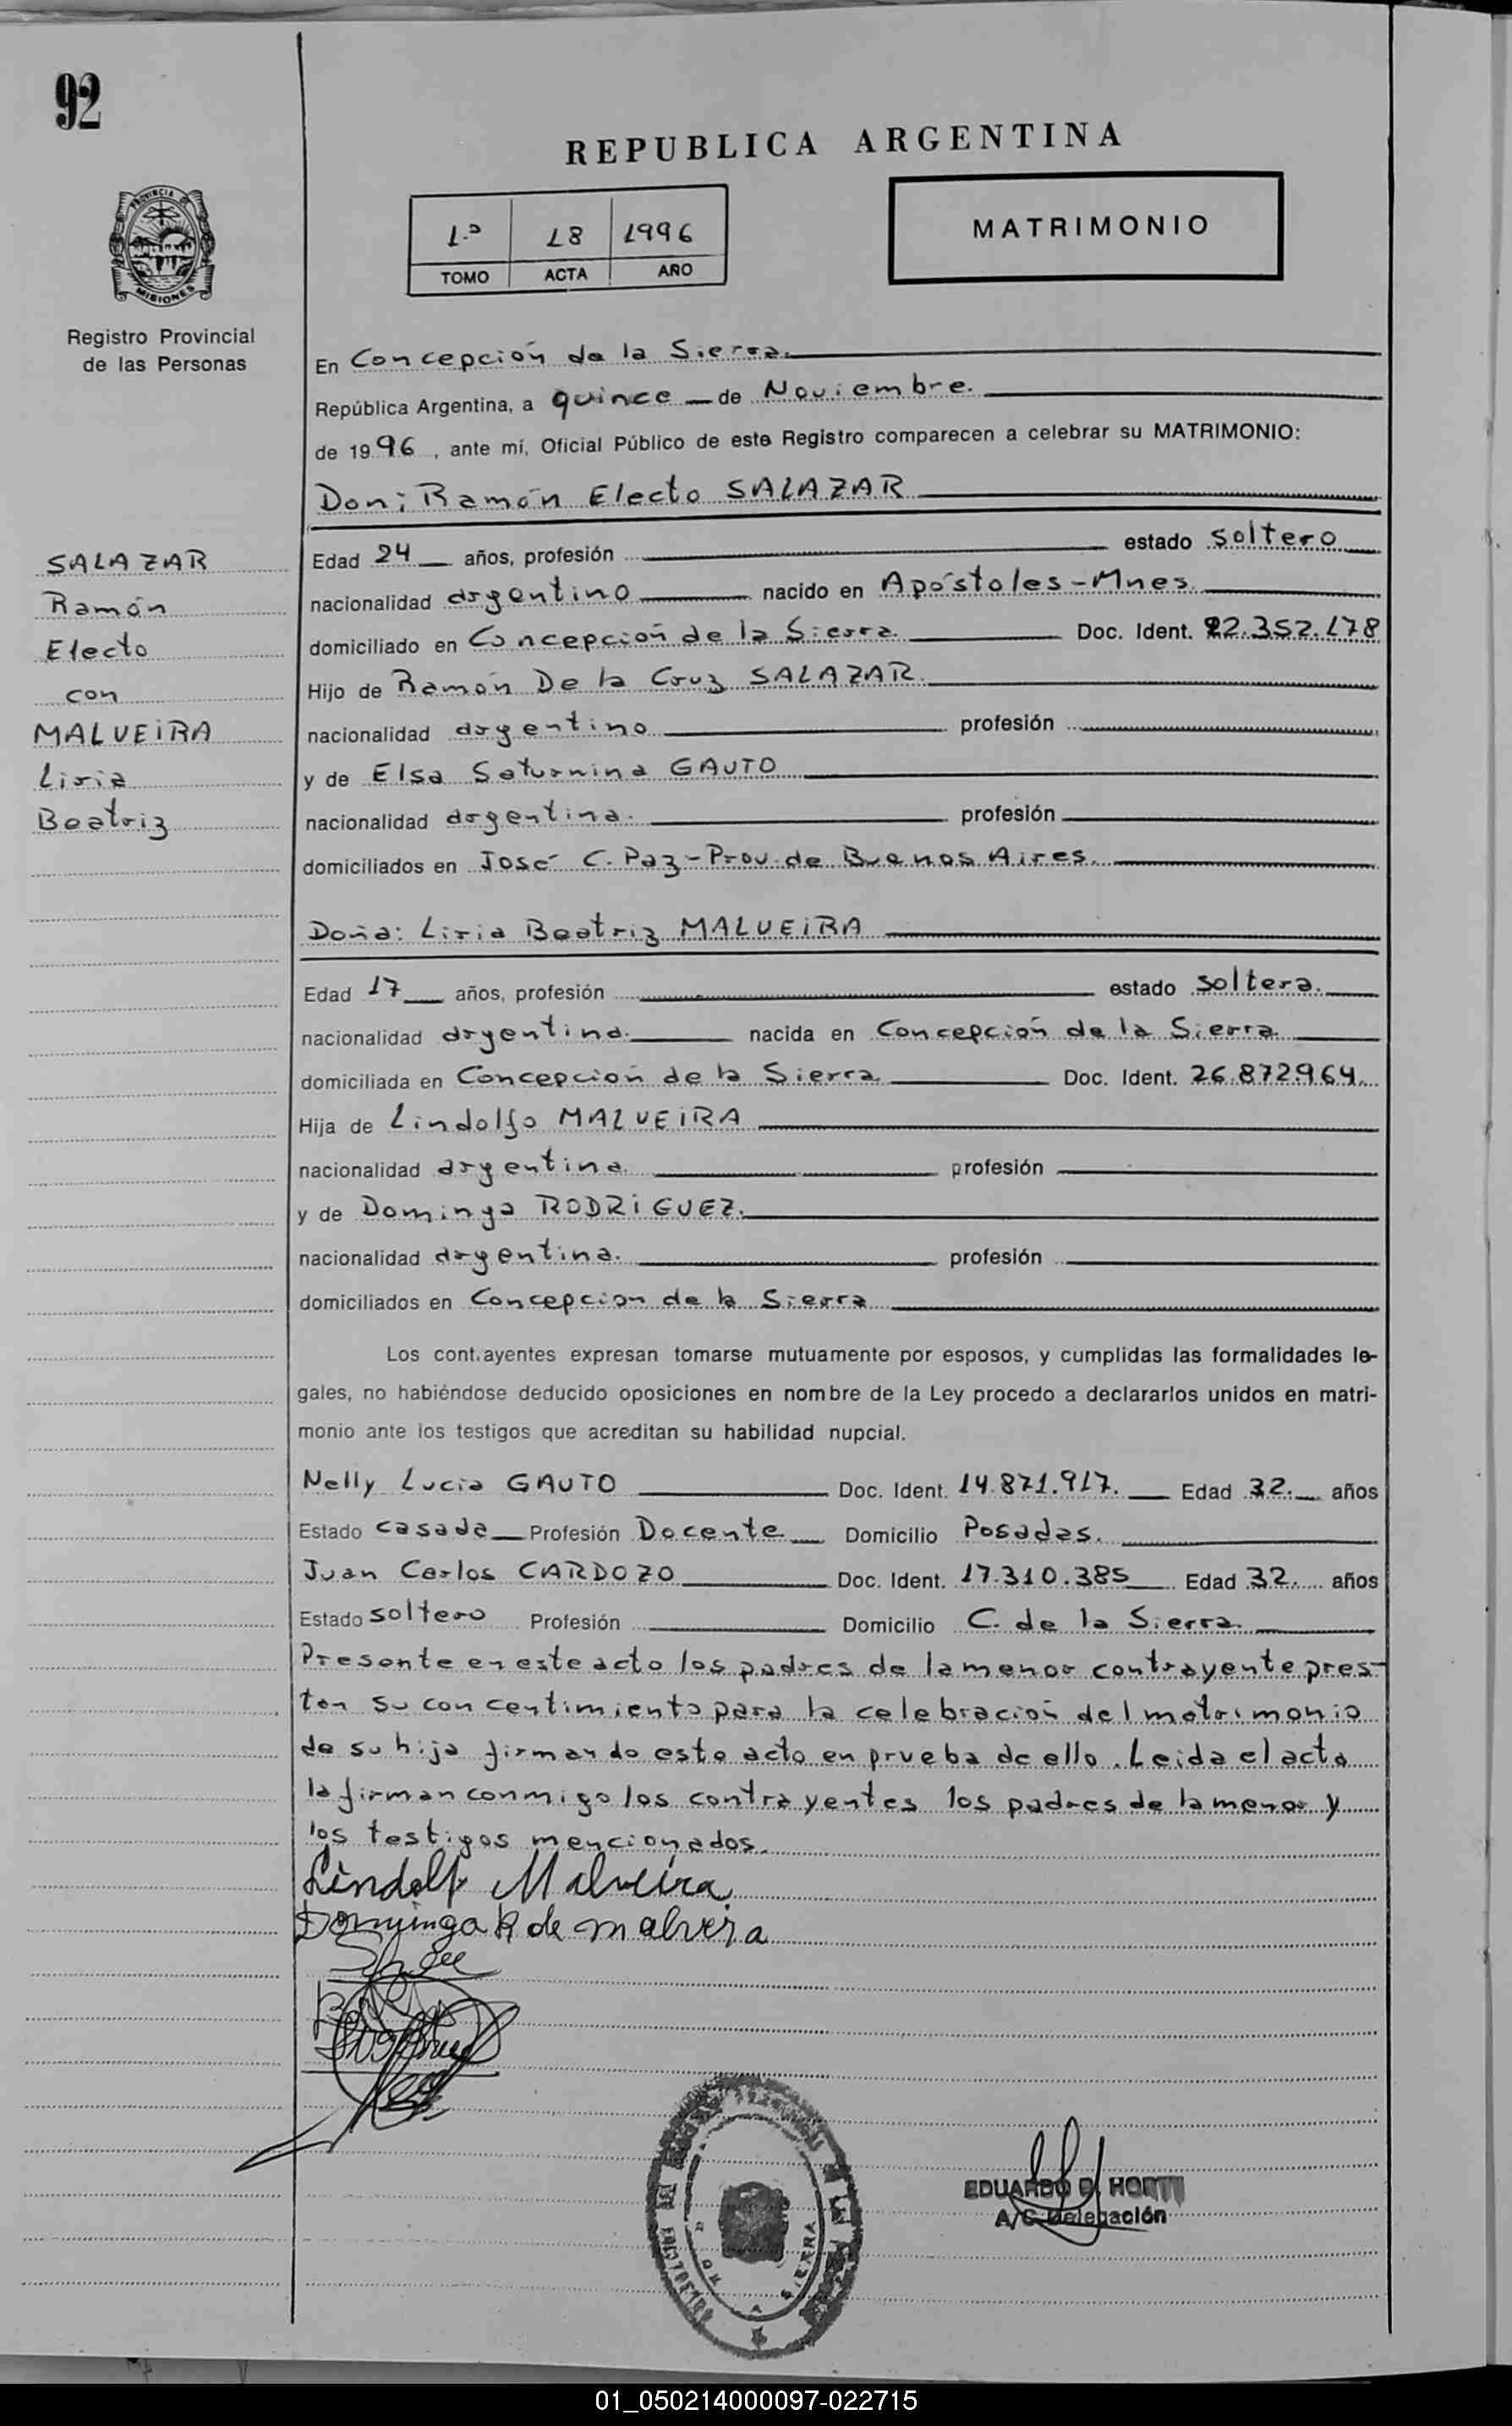 92
REPUBLICA ARGENTINA
1.º 18 1996
TOMO ACTA AÑO
MATRIMONIO
PROVINCIA DE
MISIONES
Registro Provincial
de las Personas
En Concepción de la Sierra.
República Argentina, a quince de Noviembre.
de 1996, ante mí, Oficial Público de este Registro comparecen a celebrar su MATRIMONIO:
Don; Ramón Electo SALAZAR
SALAZAR
Ramón
Electo
con
MALVEIRA
Liria
Beatriz
Edad 24 años, profesión estado soltero
nacionalidad argentino nacido en Apóstoles-Mnes.
domiciliado en Concepción de la Sierra Doc. Ident. 22.352.178
Hijo de Ramón De la Cruz SALAZAR.
nacionalidad argentino profesión
y de Elsa Saturnina GAUTO
nacionalidad argentina. profesión
domiciliados en José C. Paz-Prov. de Buenos Aires.
Doña: Liria Beatriz MALVEIRA
Edad 17 años, profesión estado soltera.
nacionalidad argentina. nacida en Concepción de la Sierra
domiciliada en Concepción de la Sierra Doc. Ident. 26.872.964.
Hija de Lindolfo MALVEIRA
nacionalidad argentina. profesión
y de Dominga RODRiGUEZ.
nacionalidad argentina. profesión
domiciliados en Concepcion de la Sierra
Los cont.ayentes expresan tomarse mutuamente por esposos, y cumplidas las formalidades le-
gales, no habiéndose deducido oposiciones en nombre de la Ley procedo a declararlos unidos en matri-
monio ante los testigos que acreditan su habilidad nupcial.
Nelly Lucia GAUTO Doc. Ident. 14.871.917. Edad 32. años
Estado casada Profesión Docente Domicilio Posadas.
Juan Carlos CARDOZO Doc. Ident. 17.310.385 Edad 32. años
Estado soltero Profesión Domicilio C. de la Sierra.
Presente en este acto los padres de la menor contrayente pres-
tan su concentimiento para la celebración del matrimonio
de su hija firmando este acto en prueba de ello. Leida el acta
la firman conmigo los contrayentes los padres de la menor y
los testigos mencionados.
Lindolfo Malveira
Dominga R de malveira
SIERRA
EDUARDO D.
A/C Delegación
01_050214000097-022715